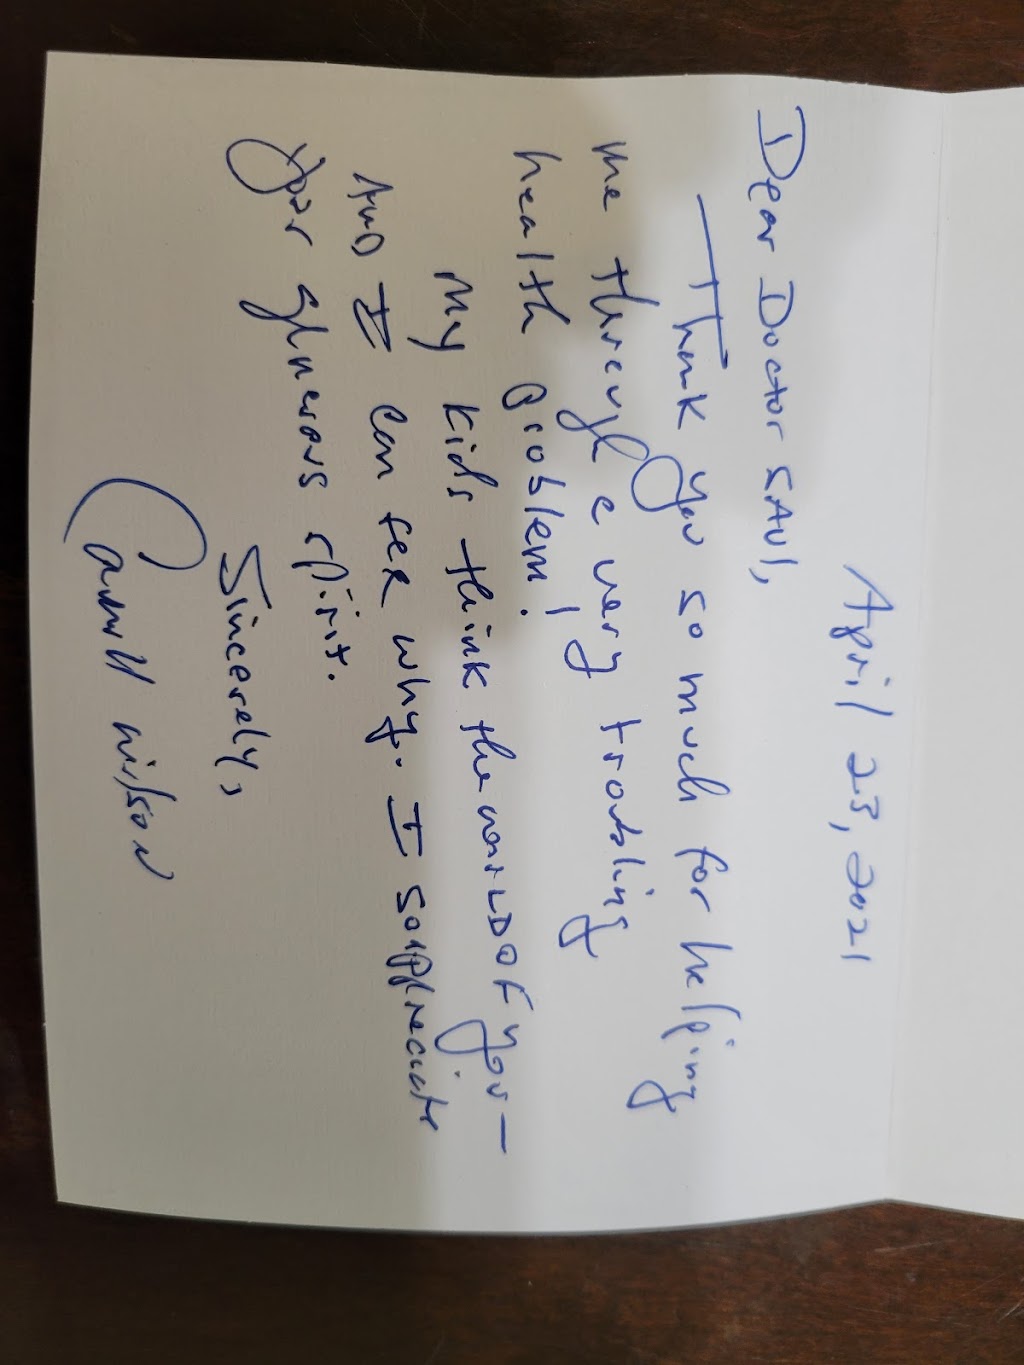 April 23, 2021
Dear Doctor SAUl,
Thank you so much for helping
me through a very troubling
health problem!
My kids think the worLD OF you —
AND I can see why. I so appreciate
your generous spirit.
Sincerely,
wilson